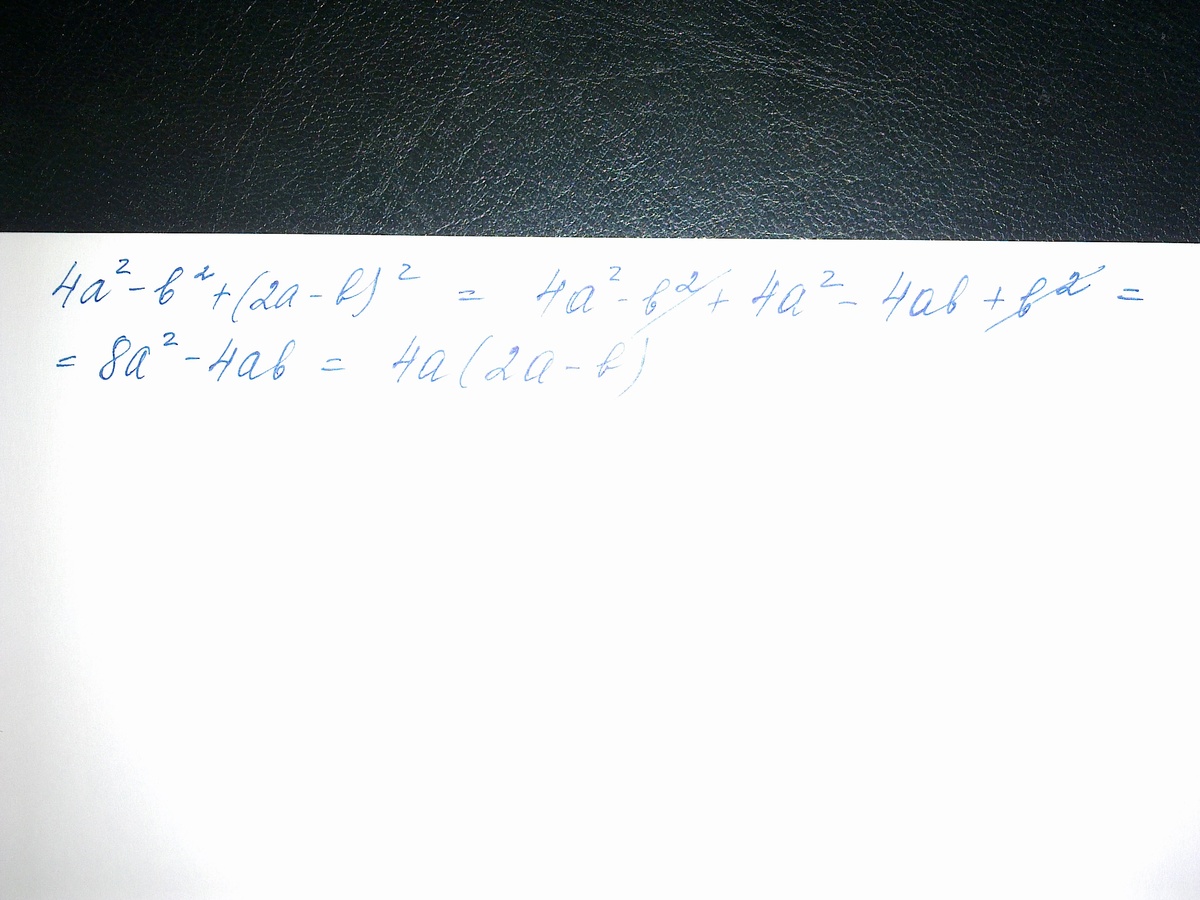 4a² - b² + (2a - b)² = 4a² - b² + 4a² - 4ab + b² =
= 8a² - 4ab = 4a(2a - b)